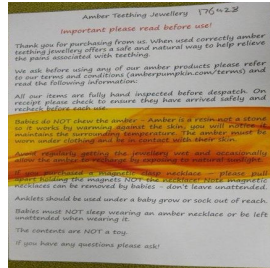 Amber Teething Jewellery 176423
Important please read before use!
Thank you for purchasing from us. When used correctly amber
teething jewellery offers a safe and natural way to help relieve
the pains associated with teething.
We ask before using any of our amber products please refer
to our terms and conditions (amberpumpkin.com/terms) and
read the following information:
All our items are fully hand inspected before despatch. On
receipt please check to ensure they have arrived safely and
recheck before each use.
Babies do NOT chew the amber - Amber is a resin not a stone
so it works by warming against the skin, you will notice it
maintains the surrounding temperature. The amber must be
worn under clothing and be in contact with their skin.
Avoid regularly getting the jewellery wet and occasionally
allow the amber to recharge by exposing to natural sunlight.
If you purchased a magnetic clasp necklace - please pull
apart holding the magnets NOT the necklace! Note magnetic
necklaces can be removed by babies - don't leave unattended.
Anklets should be used under a baby grow or sock out of reach.
Babies must NOT sleep wearing an amber necklace or be left
unattended when wearing.
The contents are NOT a toy.
If you have any questions please ask!